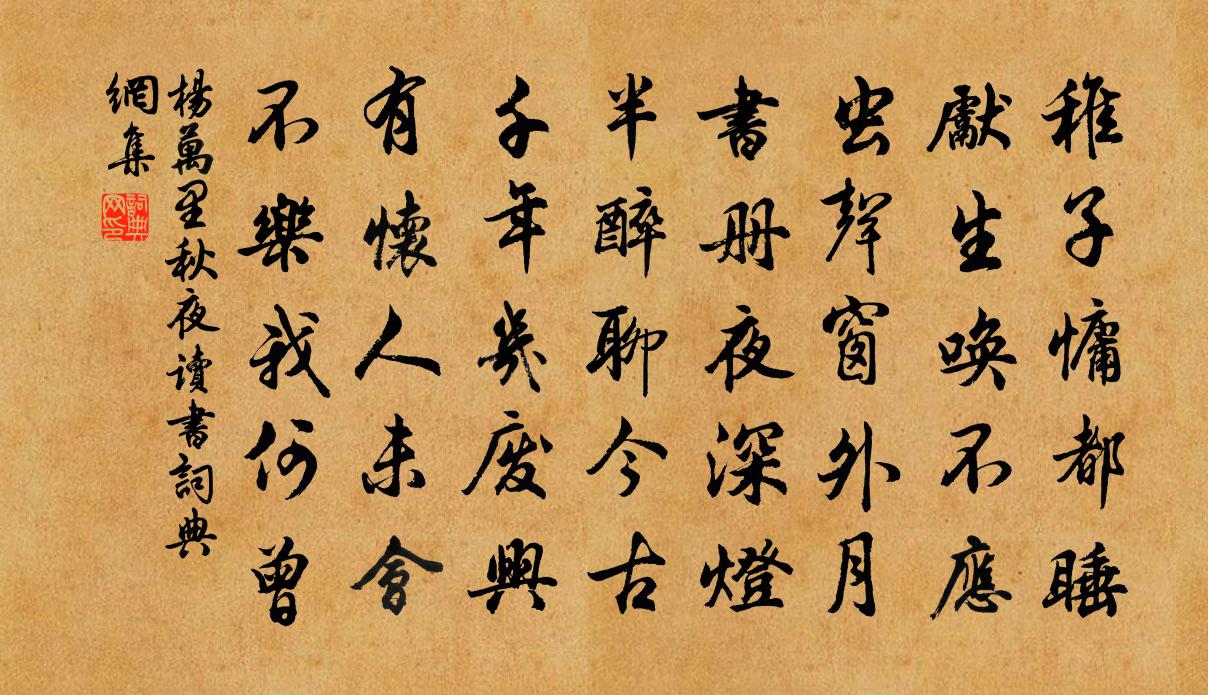 稚子慵都睡
獻生喚不應
虫聲窗外月
書册夜深燈
半醉聊今古
千年幾廢興
有懷人未會
不樂我何曾
楊萬里秋夜讀書詞典
網集
詞典
网印